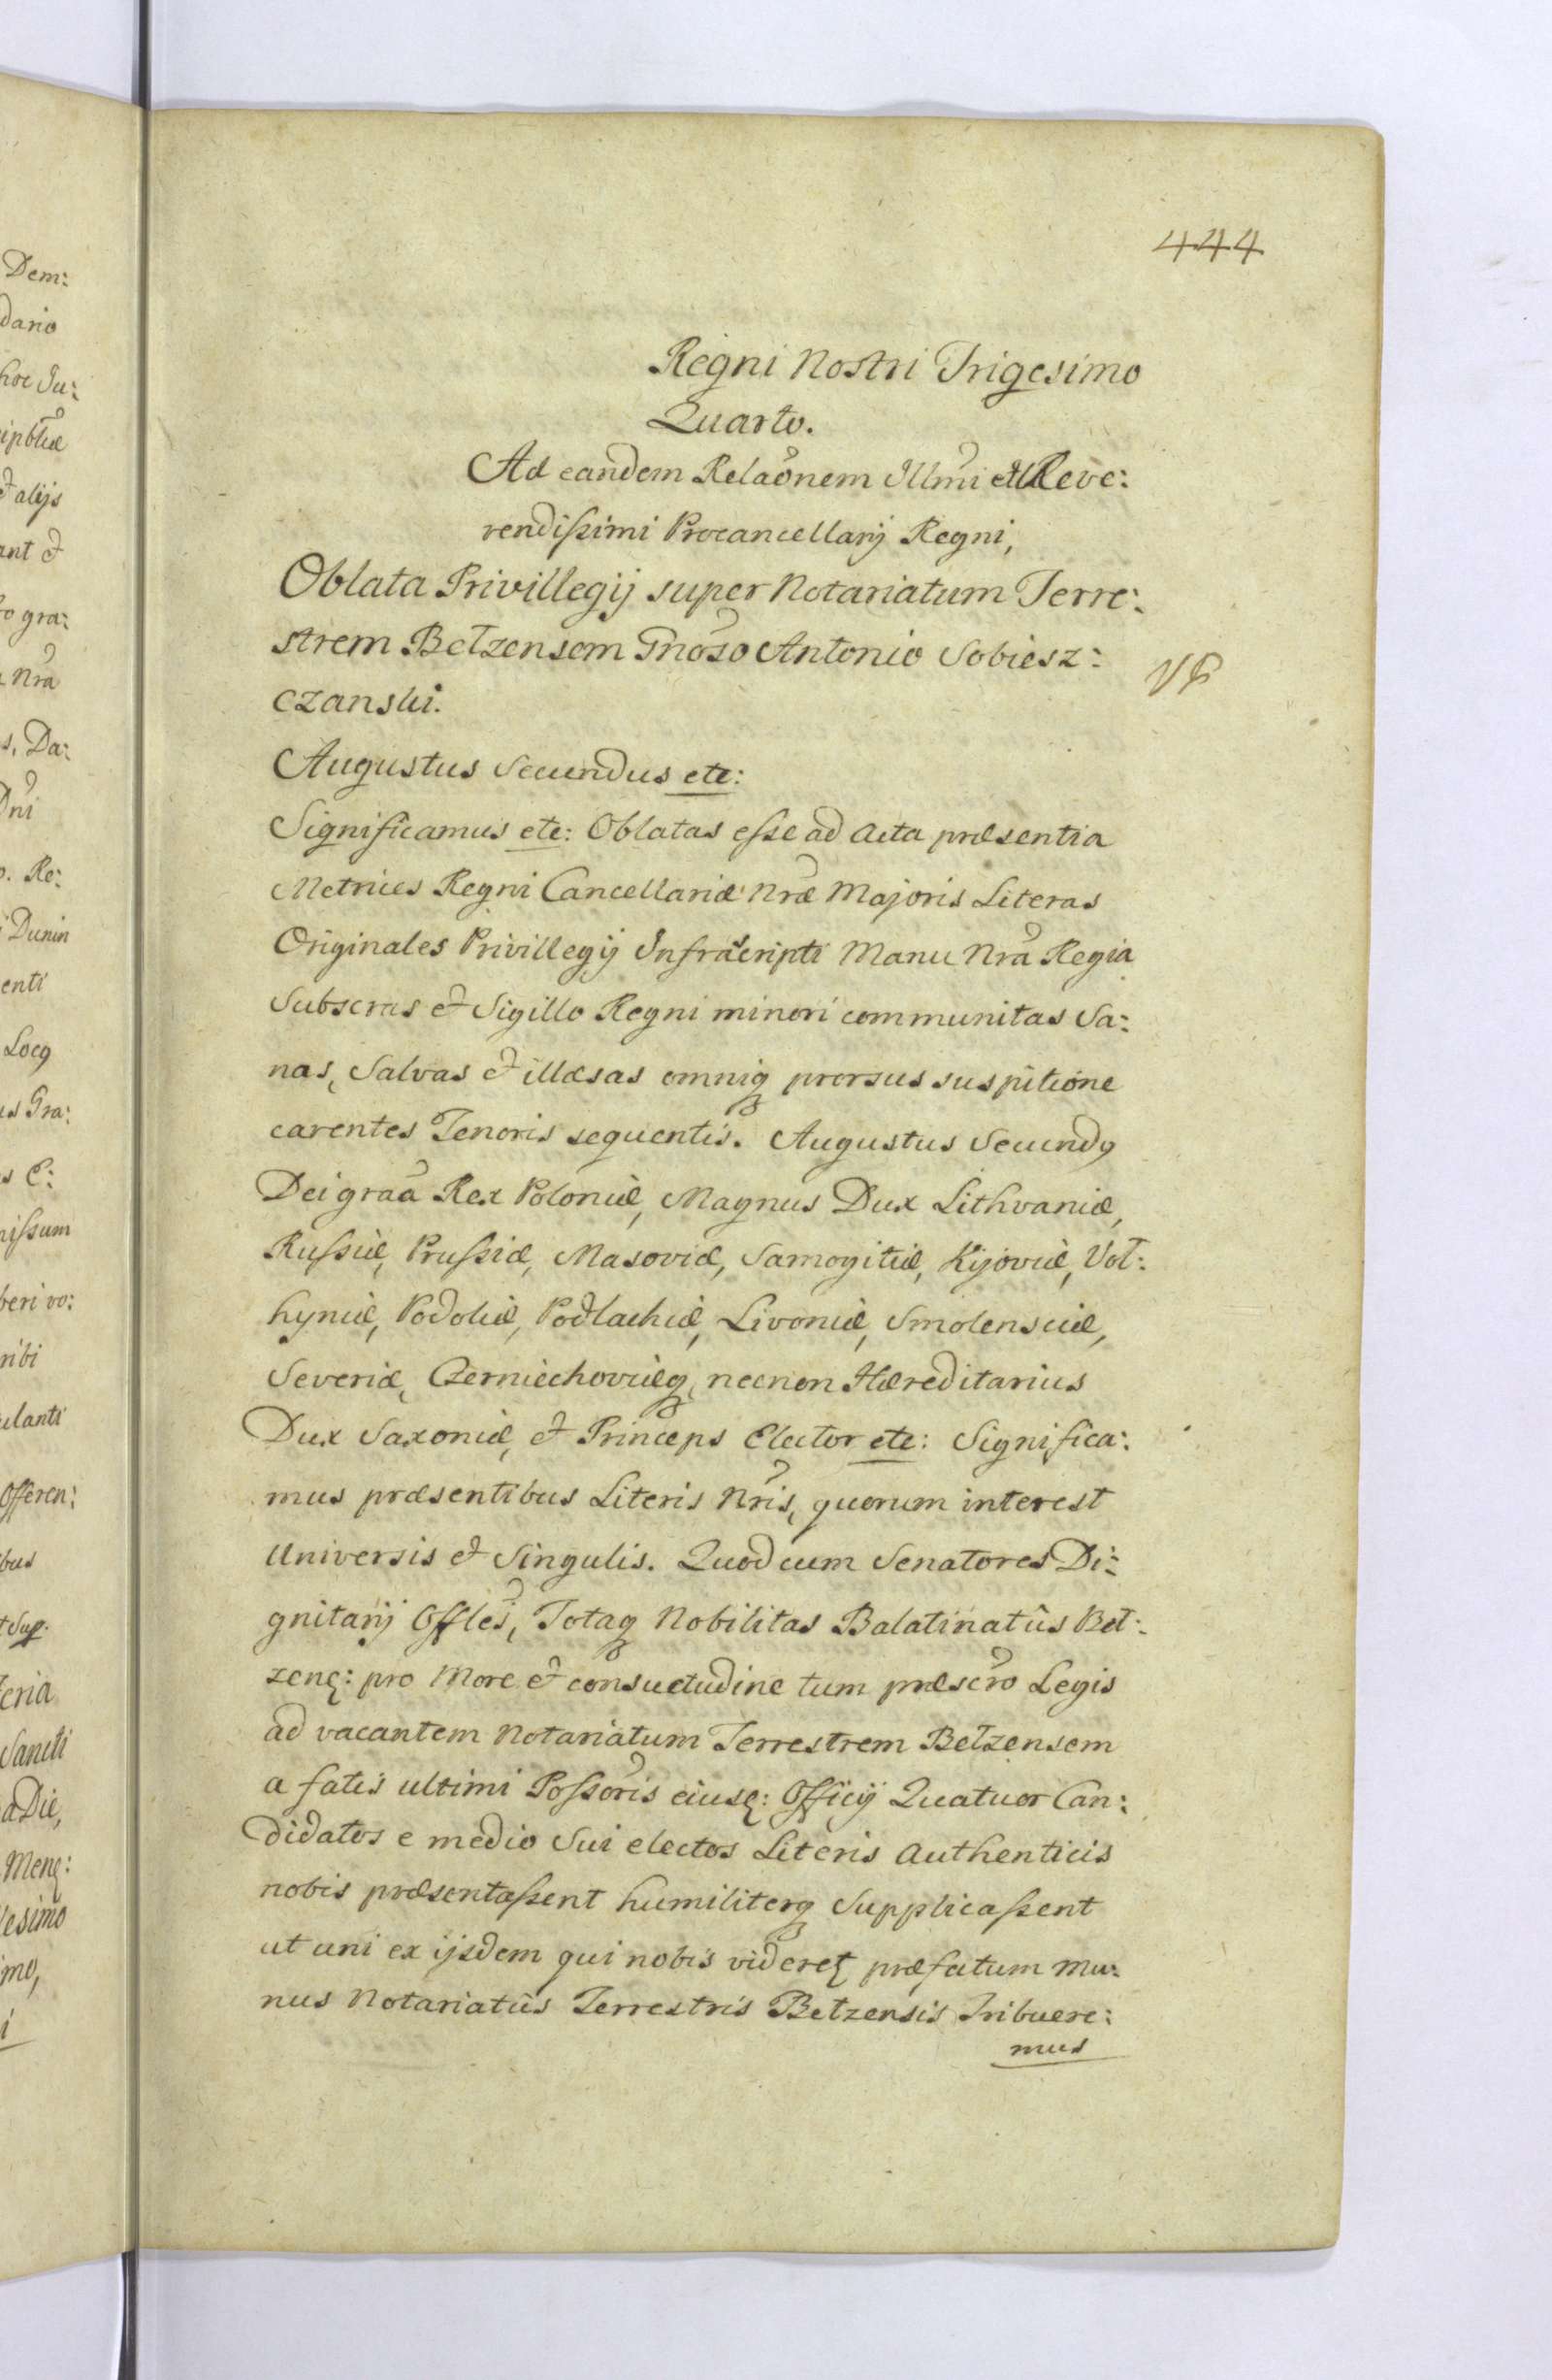 444
Regni Nostri Trigesimo
Quarto.
Ad eandem Relaõnem Illmi et Reve:
rendissimi Procancellarij Regni,
Oblata Privillegij super Notariatum Terre:
strem Betzensem Gnõso Antonio Sobiesz:
czanski.
Augustus Secundus etc:
Significamus etc: Oblatas esse ad Acta præsentia
Metrices Regni Cancellariæ Nræ Majoris Literas
Originales Privillegij Infrascripti Manu Nrã Regia
Subscras et Sigillo Regni minori communitas Sa:
nas, Salvas et illæsas omniq prorsus suspitione
carentes Tenoris sequentis. Augustus Secundus
Dei graã Rex Poloniæ, Magnus Dux Lithvaniæ,
Russiæ, Prussiæ, Masoviæ, Samogitiæ, Kijoviæ, Vol:
hyniæ, Podoliæ, Podlachiæ, Livoniæ, Smolensciæ,
Severiæ, Czerniechoviæq, necnon Hæreditarius
Dux Saxoniæ, et Princeps Elector etc: Significa:
mus præsentibus Literis Nris, quorum interest
Universis et Singulis. Quod cum Senatores Di:
gnitarij Offles, Totaq Nobilitas Balatinatûs Bet:
zens: pro More et consuetudine tum præscro Legis
ad vacantem Notariatum Terrestrem Betzensem
a fatis ultimi Possoris eiusd: Officij Quatuor Can:
didatos e medio Sui electos Literis Authenticis
nobis præsentassent humiliterq Supplicassent
ut uni ex ijsdem qui nobis videret præfatum Mu:
nus Notariatûs Terrestris Betzensis Tribuere:
mus
Dem:
dario
hoc Ju:
ipblicæ
et alijs
ant et
gra:
Nra
s, Da:
Dni
Re:
Dunin
enti
Locq
us Gra:
s E:
nissum
beri vo:
ribi
ulanti
Offeren:
bus
Sup.
eria
Sancti
a Die,
lesimo
imo,
i